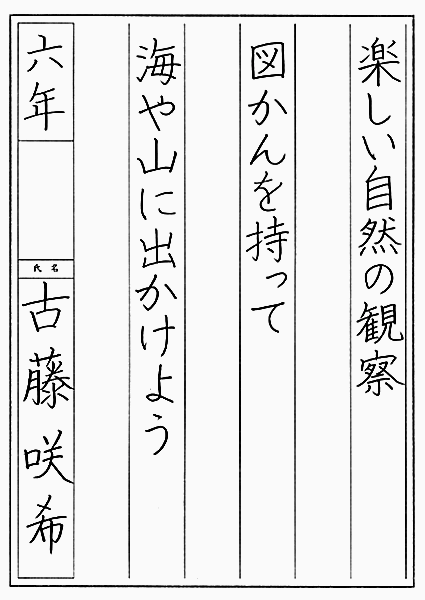 楽しい自然の観察
図かんを持って
海や山に出かけよう
六年
氏名
古藤咲希